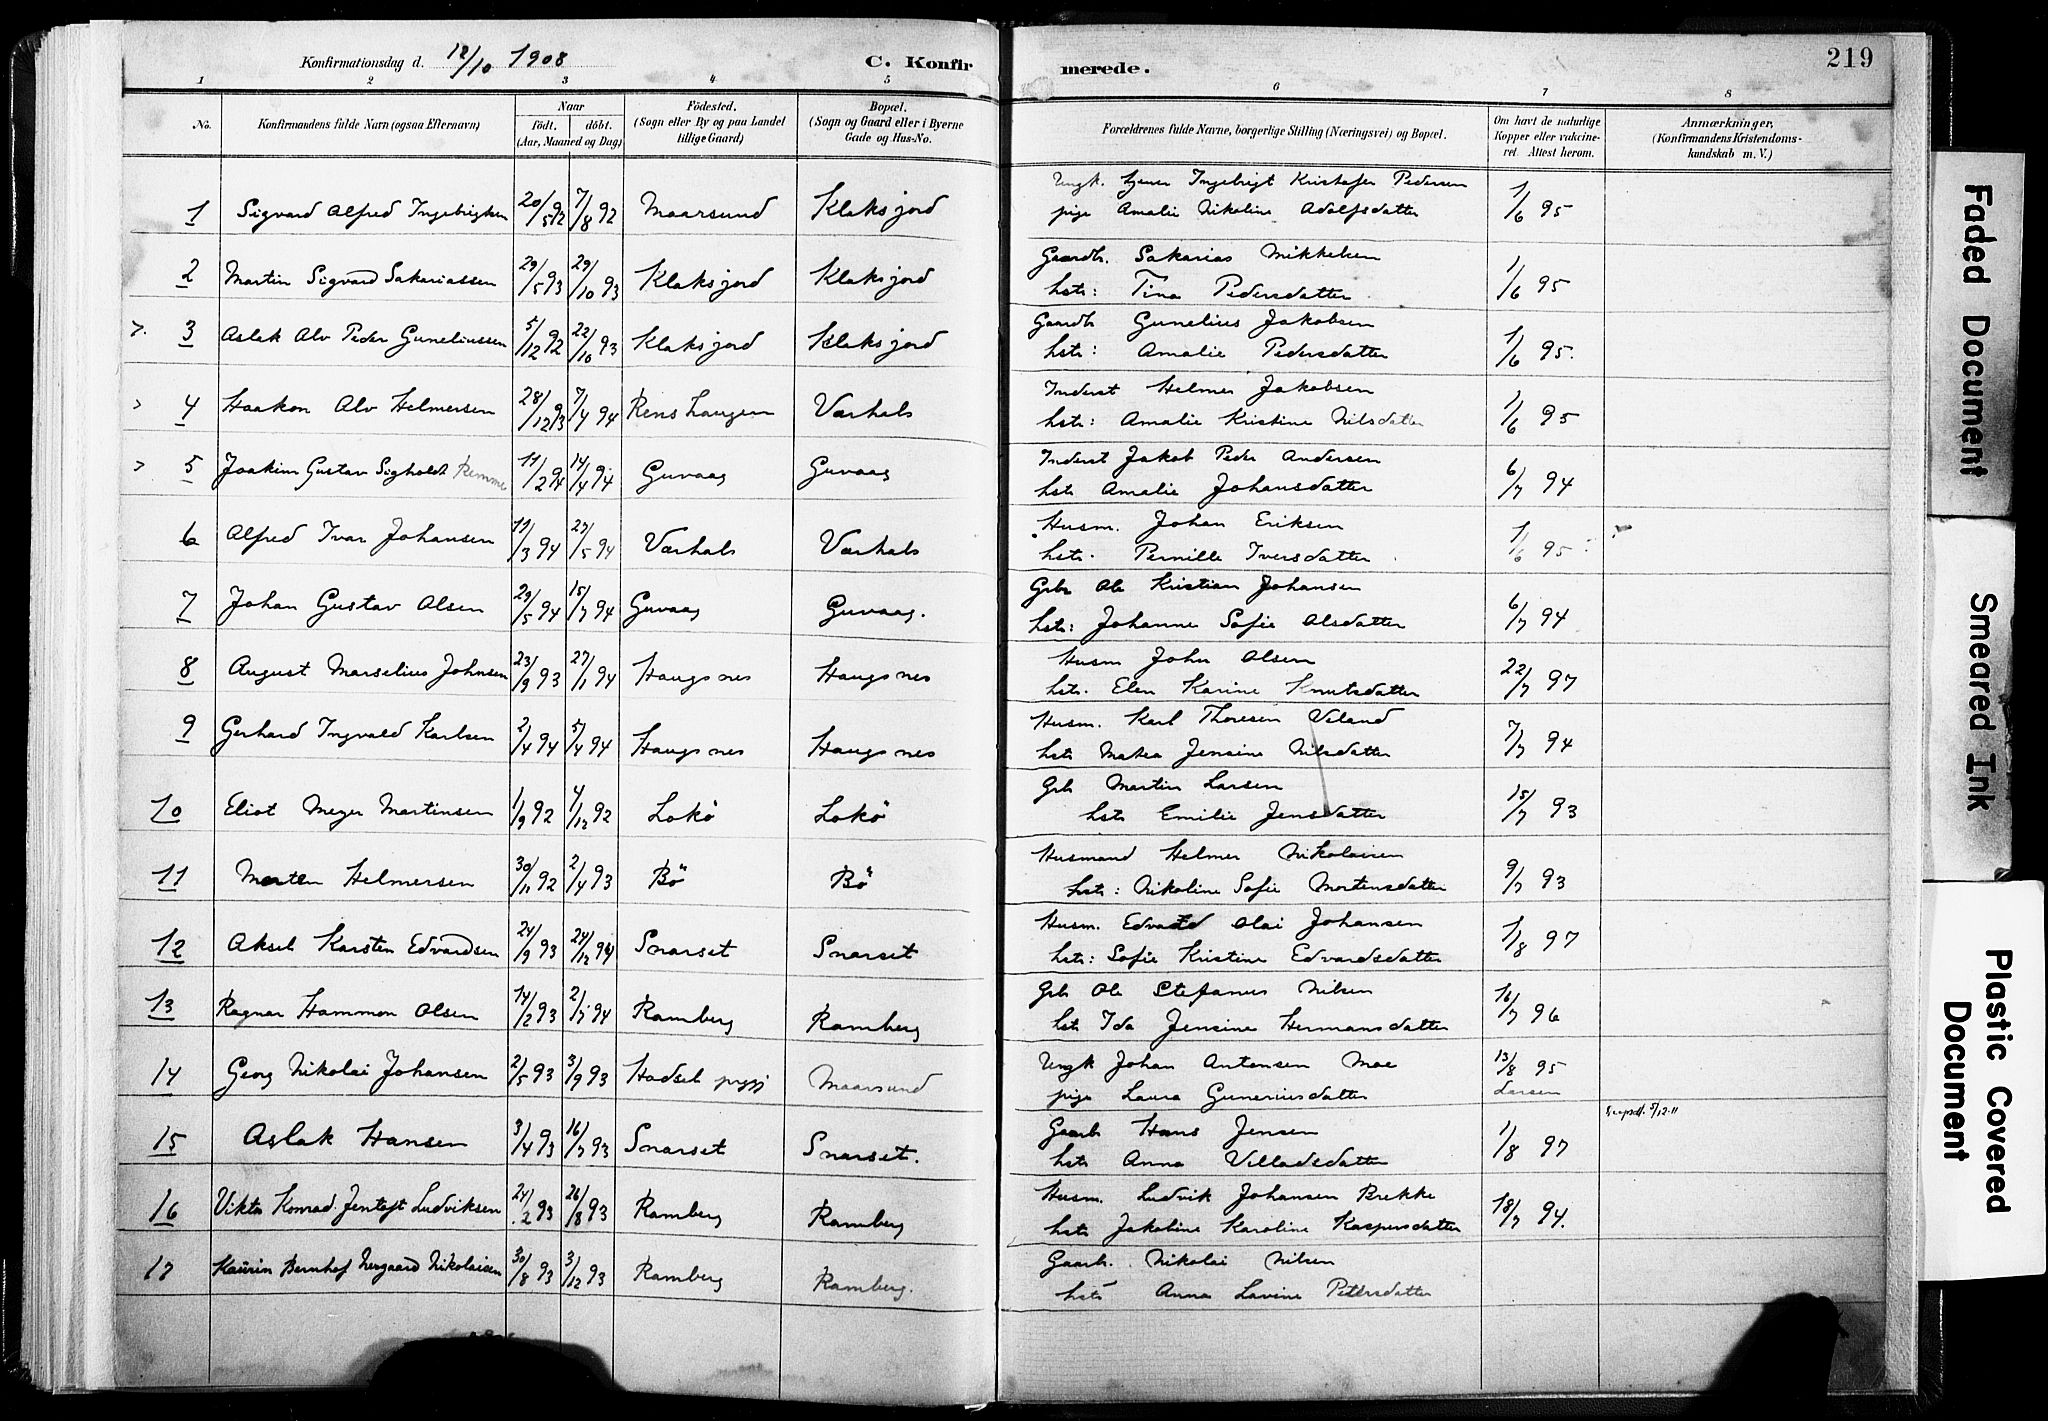 Konfirmationsdag d. 12/10 1908
C. Konfirmerede.
219
1 2 3 4 5 6 7 8
No.
Konfirmandens fulde Navn (ogsaa Efternavn)
Naar
födt. döbt.
(Aar, Maaned og Dag)
Födested.
(Sogn eller By og paa Landet
tillige Gaard)
Bopæl.
(Sogn og Gaard eller i Byerne
Gade og Hus-No.
Forældrenes fulde Navne, borgerlige Stilling (Næringsvei) og Bopæl.
Om havt de naturlige
Kopper eller vakcine-
ret. Attest herom.
Anmærkninger,
(Konfirmandens Kristendoms-
kundskab m. V.)
1 Sigvard Alfred Ingebrigtsen 20/5 92 7/8 92 Maarsund Klaksjord Ungk. Ingebrigt Kristofer Pedersen 1/6 95
pige Amalie Nikoline Adolfsdatter
2 Martin Sigvard Sakariassen 29/5 93 29/10 93 Klaksjord Klaksjord Gaardb. Sakarias Mikkelsen 1/6 95
hstr: Tina Pedersdatter
3 Aslak Alv Peder Guneliussen 5/12 92 22/10 93 Klaksjord Klaksjord Gaardb Gunelius Jakobsen 1/6 95.
hstr: Amalie Pedersdatter
4 Haakon Alv Helmersen 28/12 93 7/4 94 Varhals Inderst Helmer Jakobsen 1/6 95
hstr: Amalie Kristine Nilsdatter
5 Joakim Gustav Sigholdt Remme 11/2 94 14/4 94 Guvaag Guvaag Inderst Jakob Peder Andersen 6/7 94
hstr Amalie Johansdatter
6 Alfred Ivar Johansen 11/3 94 27/5 94 Varhals Varhals Husm. Johan Eriksen 1/6 95
hstr. Pernille Iversdatter
7 Johan Gustav Olsen 29/5 94 15/7 94 Guvaag Guvaag. Grbr Ole Kristian Johansen 6/7 94
hstr: Johanne Sofie Olsdatter
8 August Marselius Johnsen 23/9 93 27/1 94 Haugsnes Haugsnes Husm John Olsen 22/7 97
hstr. Elen Karine Knutsdatter
9 Gerhard Ingvald Karlsen 2/4 94 5/4 94 Haugsnes Haugsnes Husm. Karl Thoresen Veland 7/7 94
hstr Matea Jensine Nilsdatter
10 Eliot Meyer Martinsen 1/9 92 4/12 92 Lokö Lokö Grb Martin Larsen 15/7 93
hstr Emilie Jensdatter
11 Morten Helmersen 30/11 92 2/4 93 Bö Bö Husmand Helmer Nikolaisen 9/7 93
hstr: Nikoline Sofie Mortensdatter
12 Aksel Karsten Edvardsen 24/9 93 24/12 94 Snarset Snarset Husm. Edvard Olai Johansen 1/8 97
hstr: Sofie Kristine Edvardsdatter
13 Ragnar Hammon Olsen 14/2 93 2/7 94 Ramberg Ramberg Grb Ole Stefanus Nilsen 16/7 96
hstr Ida Jensine Hermansdatter
14 Georg Nikolai Johansen 2/5 93 3/9 93 Hadsel prgj Maarsund Ungk Johan Antonsen Moe 13/8 95
pige Laura Guneriusdatter Larsen
15 Aslak Hansen 3/4 93 16/7 93 Snarset Snarset. Gaarb Hans Jensen 1/8 97 5/12-11
hstr Anna Villadsdatter
16 Viktor Konrad Jentoft Ludviksen 24/2 93 26/8 93 Ramberg Ramberg Husm. Ludvik Johansen Brekke 18/7 94.
hstr Jakobine Karoline Kaspersdatter
17 Kaurin Bernhof Nergaard Nikolaisen 30/8 93 3/12 93 Ramberg Ramberg. Gaarb. Nikolai Nilsen
hstr Anna Lavine Petersdatter
Faded Document
Smeared Ink
Plastic Covered
Document